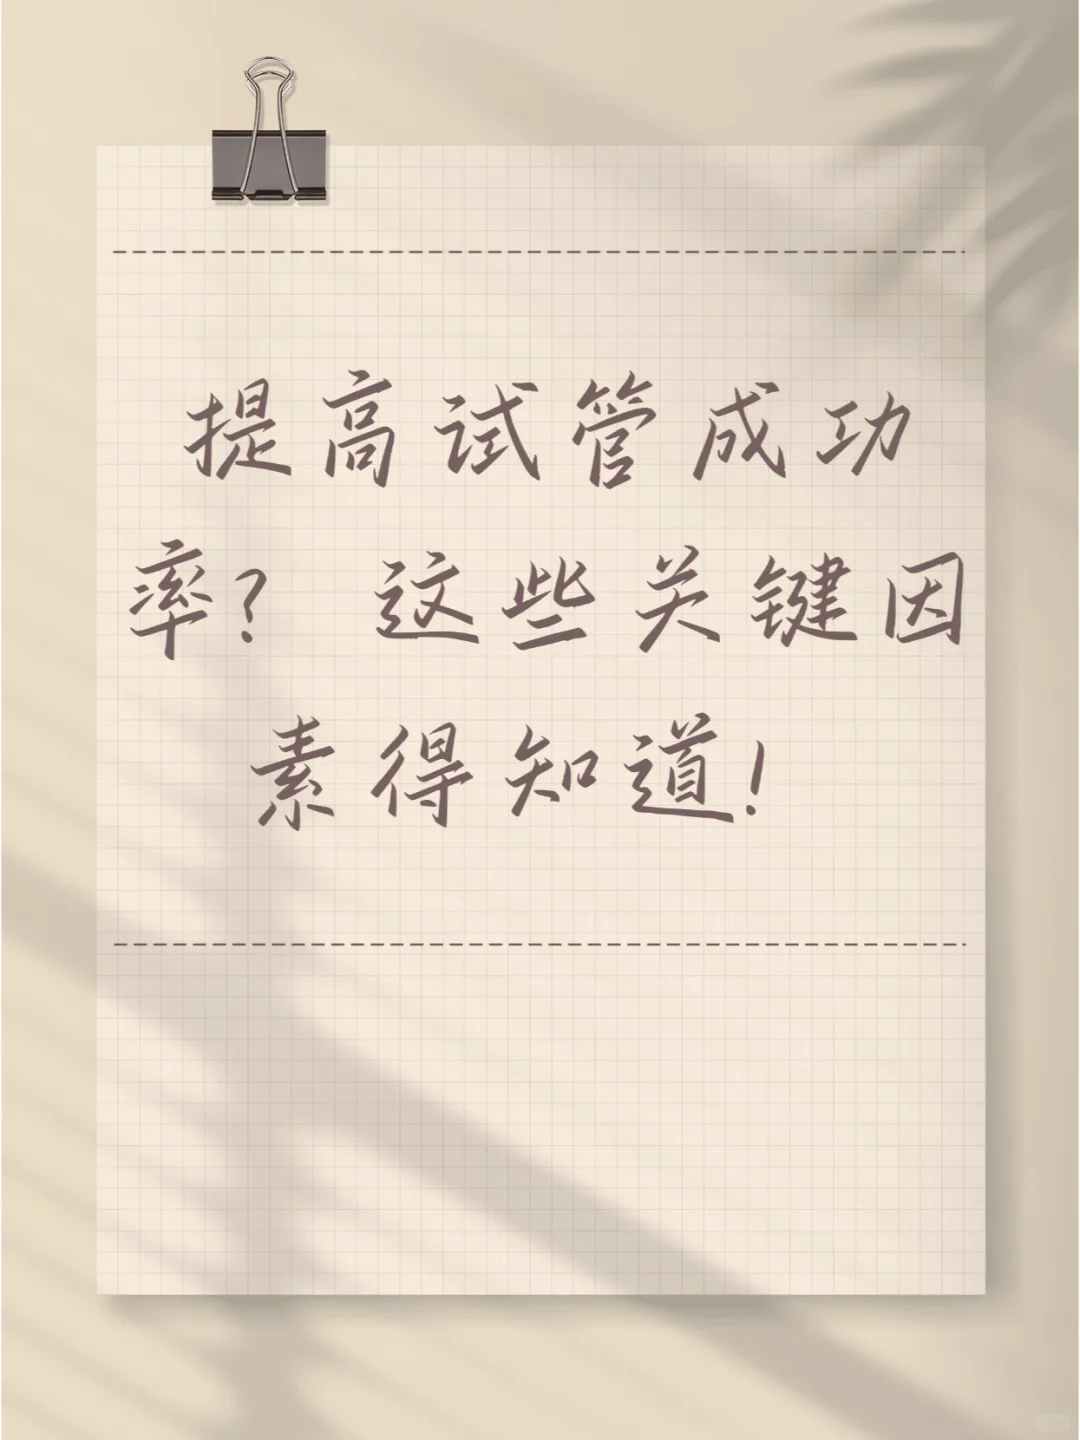 提高试管成功
率？ 这些关键因
素得知道！